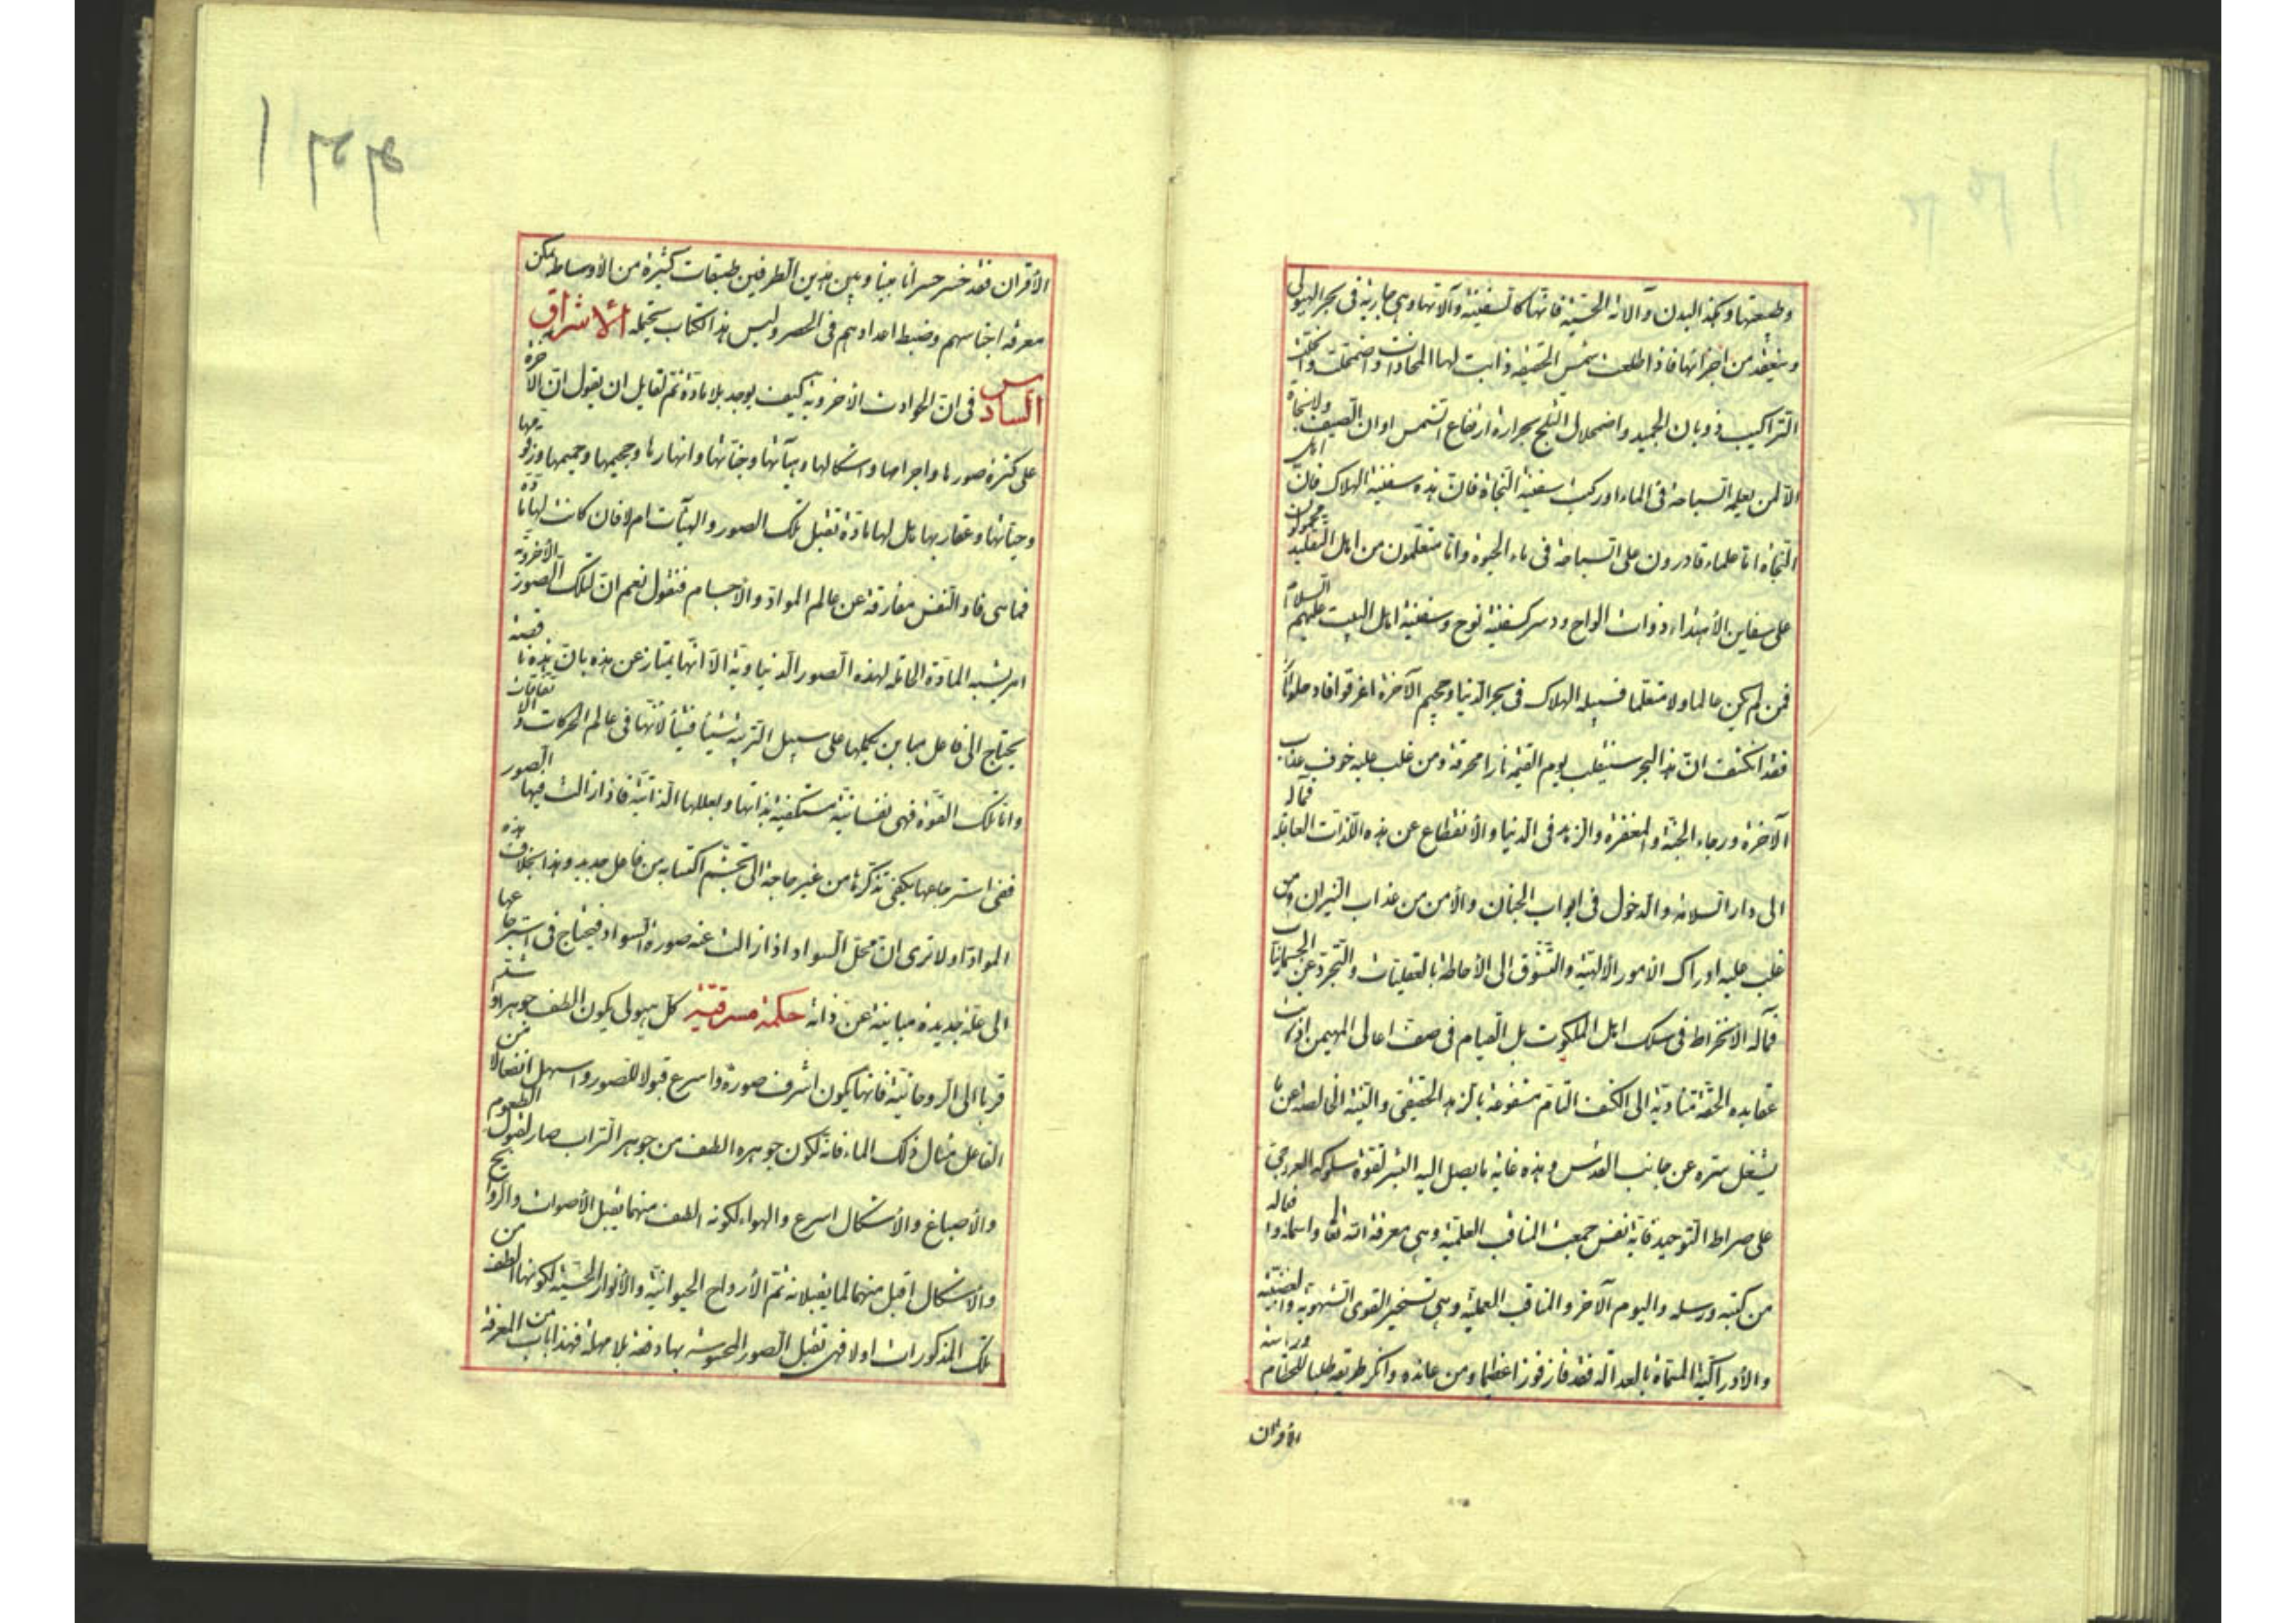 وطبيعتها وهكذا البدن وآلاته الحسّيّة فانّها كالسفينة وآلاتها وهي جارية في بحر الهيولى
وينعقد من اجزائها فاذا طلعت شمس الحقيقة ذابت لها الجمادات واضمحلّت وانحلّت
التراكيب ذوبان الجميد واضمحلال الثلج بحرارة ارتفاع الشمس اوان الصيف ولا نجاة
الّا لمن يعلم السباحة في الماء او ركب سفينة النجاة فانّ هذه سفينة الهلاك فانّ اهل
النجاة امّا علماء قادرون على السباحة في ماء الحيوة وامّا متعلّمون من اهل التقليد محمولون
على سفاين الأهتداء ذوات الواح ودسر كسفينة نوح وسفينة اهل البيت عليهم السلام
فمن لم يكن عالما ولا متعلّما فسبيله الهلاك في بحر الدنيا وجحيم الآخرة اغرقوا فادخلوا نارا
فقد انكشف انّ هذا البحر سينقلب يوم القيمة نارا محرقة ومن غلب عليه خوف عذاب
الآخرة ورجاء الجنّة والمغفرة والزهد في الدنيا والأنقطاع عن هذه اللّذات العاجلة فمآله
الى دار السلامة والدخول في ابواب الجنان والأمن من عذاب النيران ومن
غلب عليه ادراك الأمور الألهيّة والتشوّق الى الأحاطة بالعقليّات والتجرّد عن الجسمانيّات
فمآله الانخراط في سلك اهل الملكوت بل القيام في صف اعالى المهيمن اذ كانت
عقايده الحقّة متادّية الى الكشف التامّ مشفوعة بالزهد الحقيقي والنيّة الخالصة عن ما
يشغل سرّه عن جانب القدس وهذه غاية ما يصل اليه البشر لقوّة سلوكه العروجي
على صراط التوحيد فايّة نفس جمعت المناقب العلميّة وهي معرفة الله تعالى واسمائه وافعاله
من كتبه ورسله واليوم الآخر والمناقب العمليّة وهي تسخير القوى الشهويّة والغضبيّة
والأدراكيّة المسمّاة بالعدالة فقد فاز فوزا عظيما ومن عانده وانكر طريقه طلبا للحطام وراسة
الأقران
الأقران فقد خسر خسرانا مبينا وبين هذين الطرفين طبقات كثيرة من الأوساط يمكن
معرفة اجناسهم وضبط اعدادهم في الحصر وليس هذا الكتاب يحتمله الأشراق
السادس في انّ الحوادث الأخرويّة كيف يوجد بلا مادّة ثم لقايل ان يقول انّ الآخرة
على كثرة صورها واجرامها واشكالها وهيآتها وجنّاتها وانهارها وجحيمها وحميمها وزقّومها
وحيّاتها وعقاربها هل لها مادّة تقبل تلك الصور والهيآت ام لا فان كانت لها مادّة
فما هي فاذ النفس مفارقة عن عالم الموادّ والاجسام فنقول نعم انّ لتلك الصورة الأخرويّة
امر يشبه المادّة الحاملة لهذه الصور الدنياويّة الّا انّها يمتاز عن هذه بانّ هذه ناقصة
يحتاج الى فاعل مباين يكملها على سبيل التربية شيئا فشيئا لأنّها في عالم الحركات والاتّفاقات
وامّا تلك القوّة فهي نفسانيّة مستكفية بذاتها وبعللها الذاتيّة فاذا زالت فيها الصور
ففي استرجاعها يكفي تذكّرها من غير حاجة الى تجشّم اكتسابه من فاعل جديد وهذا بخلاف هذه
الموادّ اولا ترى انّ محلّ السواد اذا زالت عنه صورة السواد فيحتاج في استرجاعها
الى علّة جديدة مباينة عن ذاته حكمة مشرقيّة كلّ هيولى يكون الطف جوهرا واشدّ
قربا الى الروحانيّة فانّها يكون اشرف صورة واسرع قبولا للصور واسهل انفعالا من
الفاعل مثال ذلك الماء فانّه لكون جوهره الطف من جوهر التراب صار لقبول الطعوم
والأصباغ والأشكال اسرع والهواء لكونه الطف منهما يقبل الأصوات والروايح
والأشكال اقبل منهما لما يقبلانه ثم الأرواح الحيوانيّة والأنوار الحسيّة لكونها الطف من
تلك المذكورات اولا فهي تقبل الصور المحسوسة بها دفعة بلا مهلة فهذا باب من المعرفة